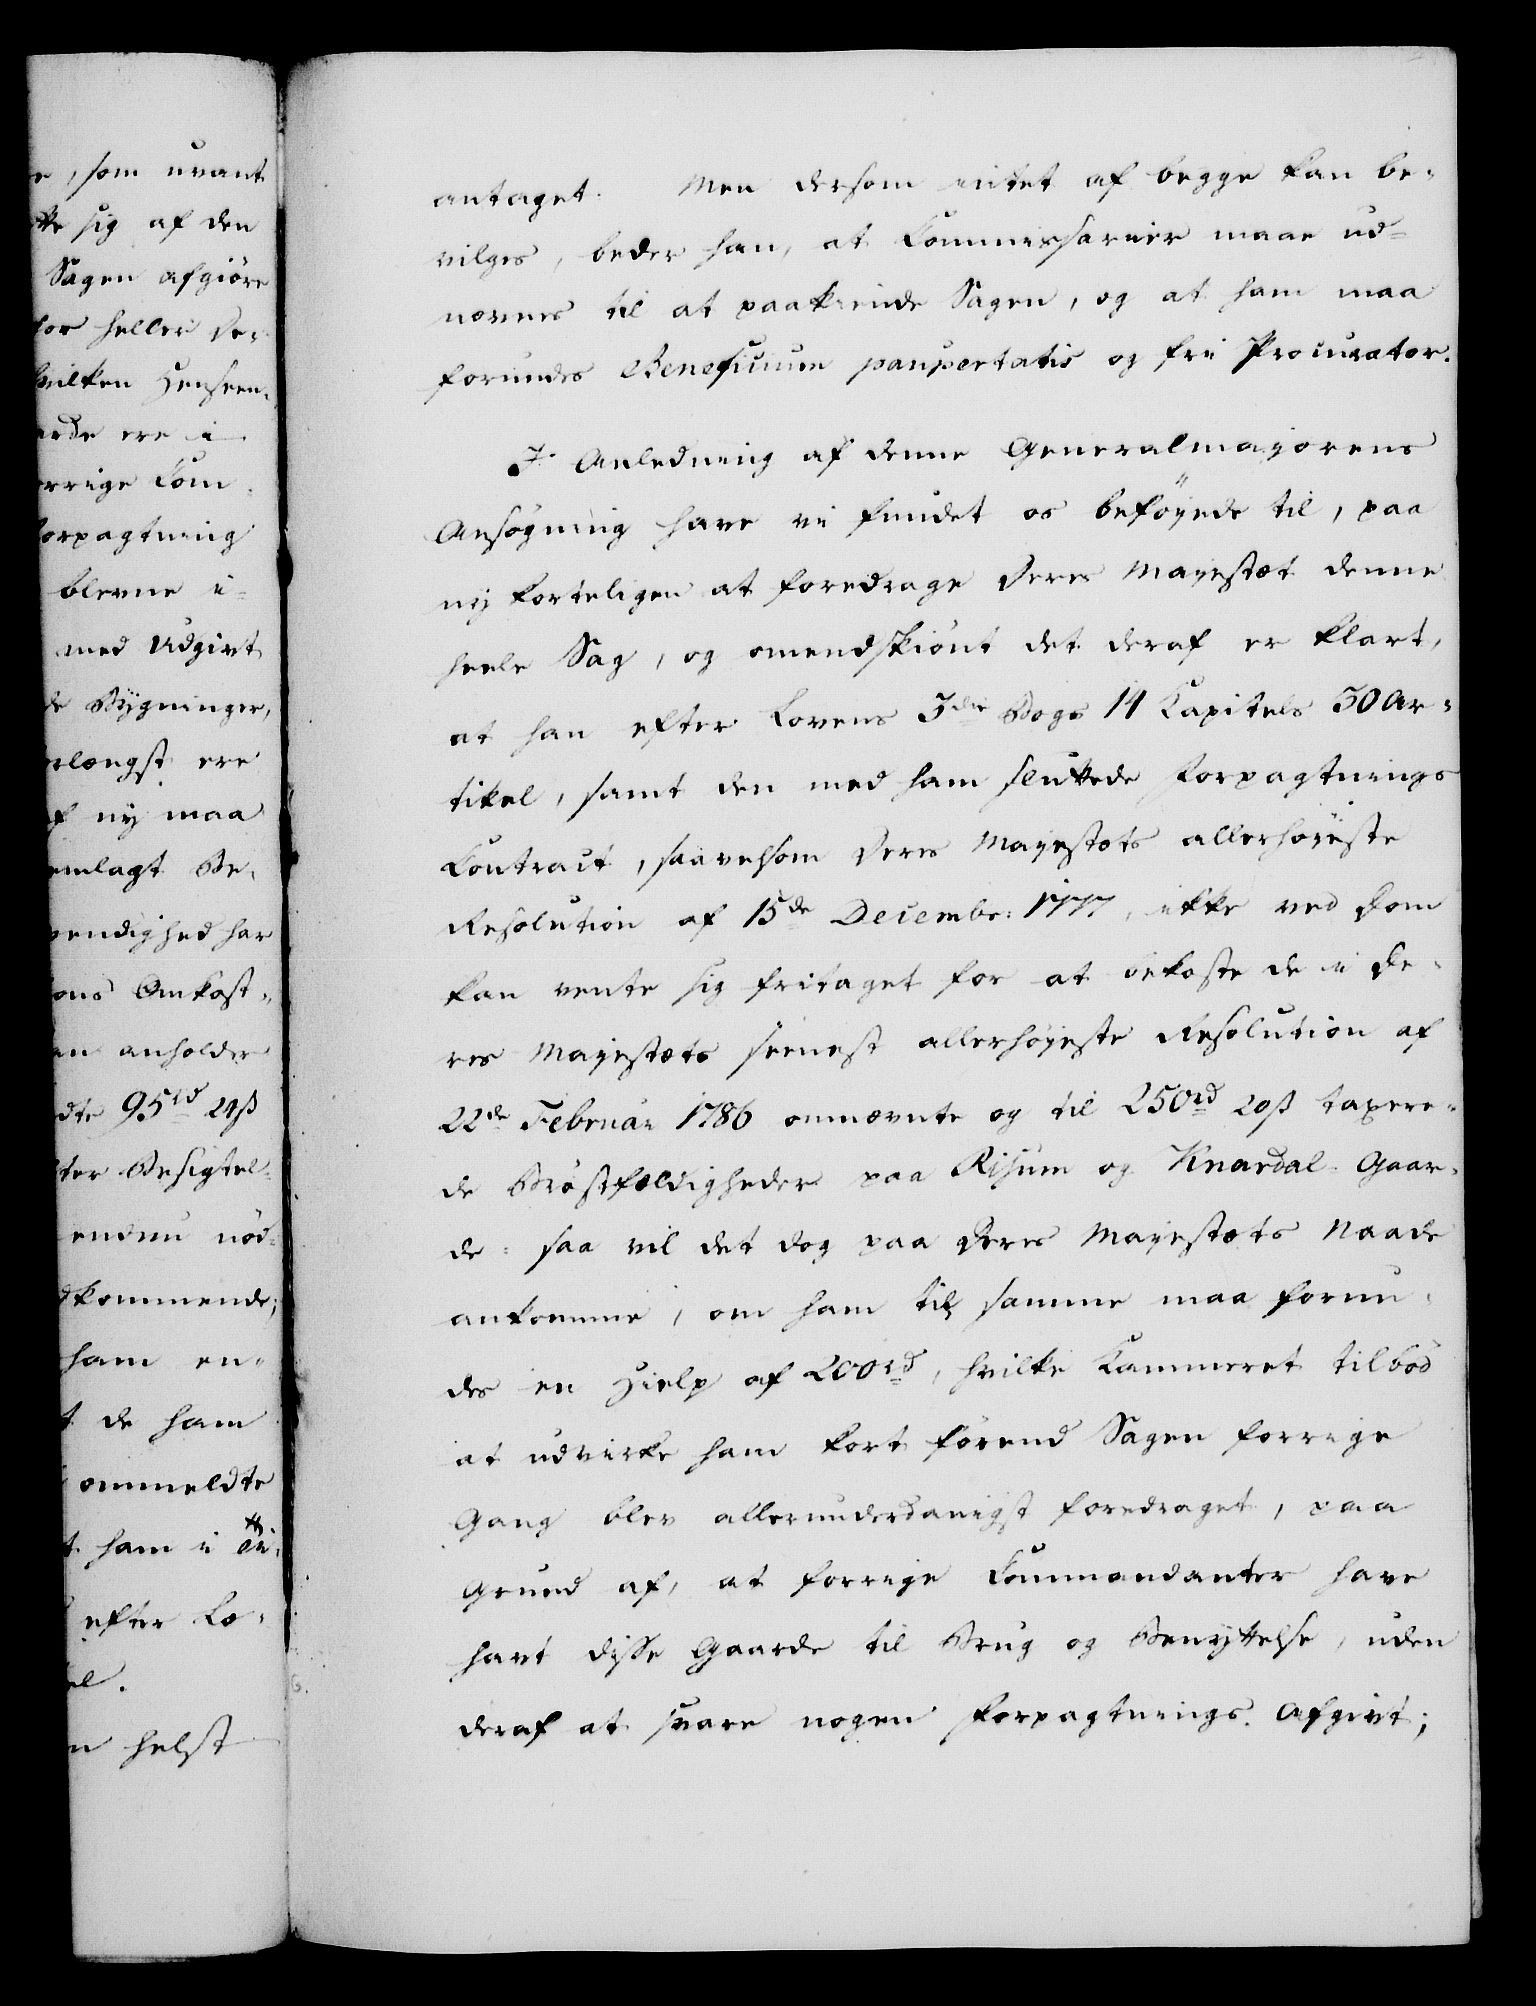 e, som uvant
tte sig af den
Sagen afgiöre
for heller De-
hvilken Henseen-
arde ere i
orrige Com-
orpagtning
blevne i-
med Udgivt
de Bygninger,
rlængst ere
af nÿ maa
emlagt Be-
vendighed har
ons Omkost-
en anholder
dte 95rd 24ß
ter Besigtel-
endnu nöd-
dkommende;
ham en-
t de ham
ommeldte
t ham i
efter Lo-
el.
n helst
antaget. Men dersom intet af begge kan be-
vilges, beder han, at Commissarier maae ud-
nævnes til at paakiende Sagen, og at ham maa
forundes Beneficium paupertatis og fri Procurator.
I Anledning af denne Generalmajorens
Ansögning have vi fundet os beföyede til, paa
nÿ korteligen at foredrage Deres Mayestæt denne
heele Sag, og omendskiönt det deraf er klart,
at han efter Lovens 3die Bogs 14 Capitels 30 Ar-
tikel, samt den med ham sluttede Forpagtnings
Contract, saavelsom Deres Mayestæts allerhöyeste
Resolution af 15de Decembr: 1777, ikke ved Dom
kan vente sig fritaget for at bekoste de i De-
res Mayestæts seenest allerhöyeste Resolution af
22de Februar 1786 omnævnte og til 250rd 20ß taxere-
de Bröstfældigheder paa Risum og Knardal-Gaar-
de: saa vil det dog paa Deres Mayestæts Naade
ankomme, om ham til samme maa forun-
des en Hielp af 200rd, hvilke Kammeret tilböd
at udvirke ham kort förend Sagen forrige
Gang blev allerunderdanigst foredraget, paa
Grund af, at forrige Commandanter have
havt disse Gaarde til Brug og Benyttelse, uden
deraf at svare nogen Forpagtnings-Afgivt;